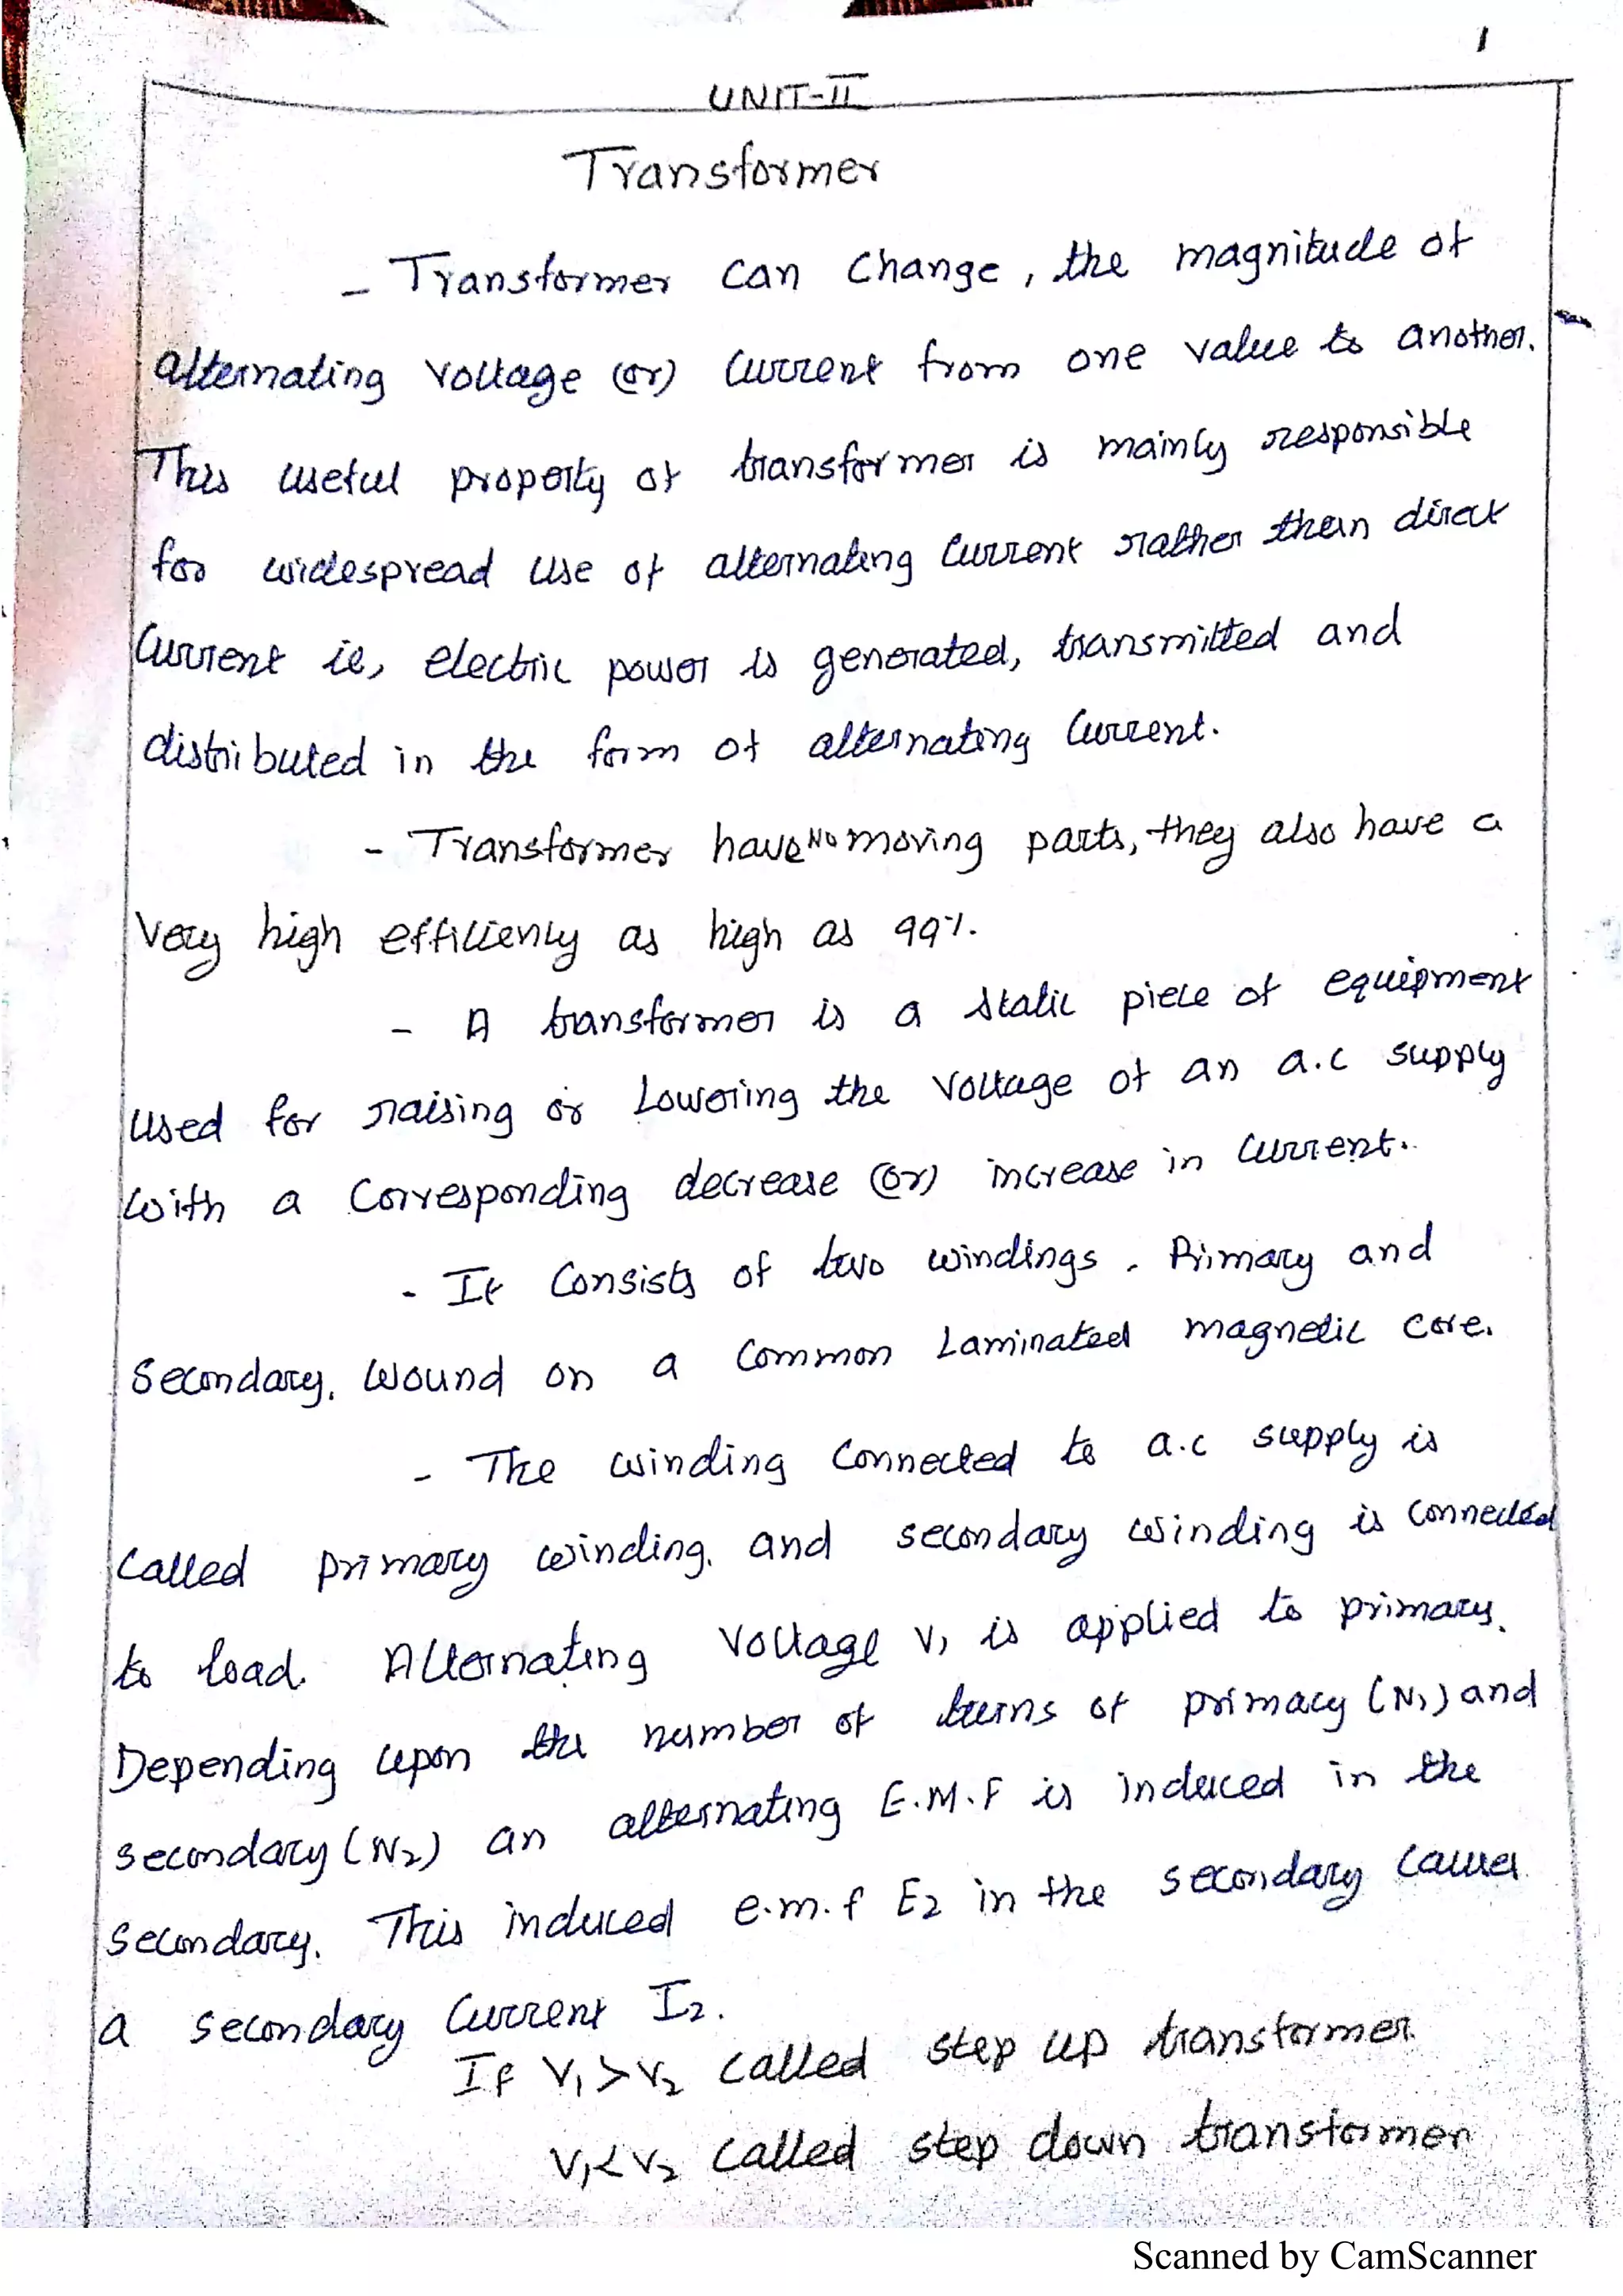 1
UNIT-II
Transformer
- Transformer can change, the magnitude of
alternating voltage (or) current from one value to another.
This useful property of transformer is mainly responsible
for widespread use of alternating current rather than direct
current ie, electric power is generated, transmitted and
distributed in the form of alternating current.
- Transformer have No moving parts, they also have a
very high efficiency as high as 99%.
- A transformer is a static piece of equipment
used for raising or Lowering the voltage of an a.c supply
with a corresponding decrease (or) increase in current.
- It Consists of two windings. Primary and
Secondary, wound on a common Laminated magnetic core.
- The winding connected to a.c supply is
called primary winding. and secondary winding is connected
to load. Alternating voltage V1 is applied to primary.
Depending upon the number of turns of primary (N1) and
secondary (N2) an alternating E.M.F is induced in the
secondary. This induced e.m.f E2 in the secondary causes
a secondary current I2.
If V1 > V2 called step up transformer
V1 < V2 called step down transformer
Scanned by CamScanner